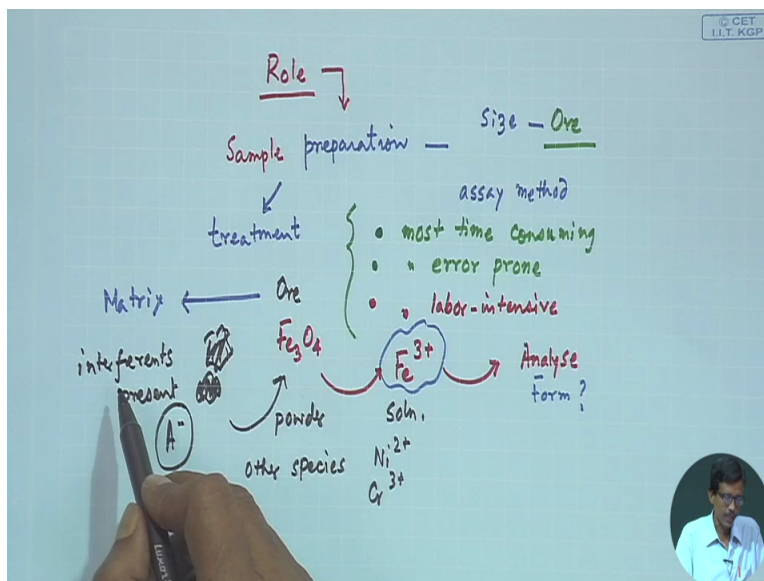 © CET
I.I.T. KGP
Role
Sample preparation — Size — Ore
assay method
treatment
• most time consuming
• " error prone
• " labor-intensive
Matrix ← Ore
Fe3O4
Fe3+
Analyse
Form?
interferents
present
A-
powder
Soln.
other species
Ni2+
Cr3+